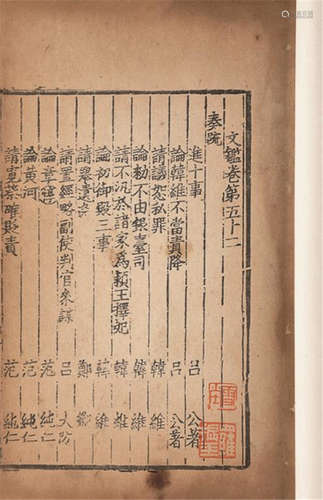 文鑑卷第五十二
奏疏
進十事 呂公著
論韓維不當責降 呂公著
請議怨私罪 韓維
論勑不由銀臺司 韓維
請不汎於諸家為穎王擇妃 韓維
論初御殿三事 韓維
請寨遺
請置經略副使判官參謀 呂大防
論章 范純仁
論黃河 范純仁
請寬蔡確貶責 范純仁